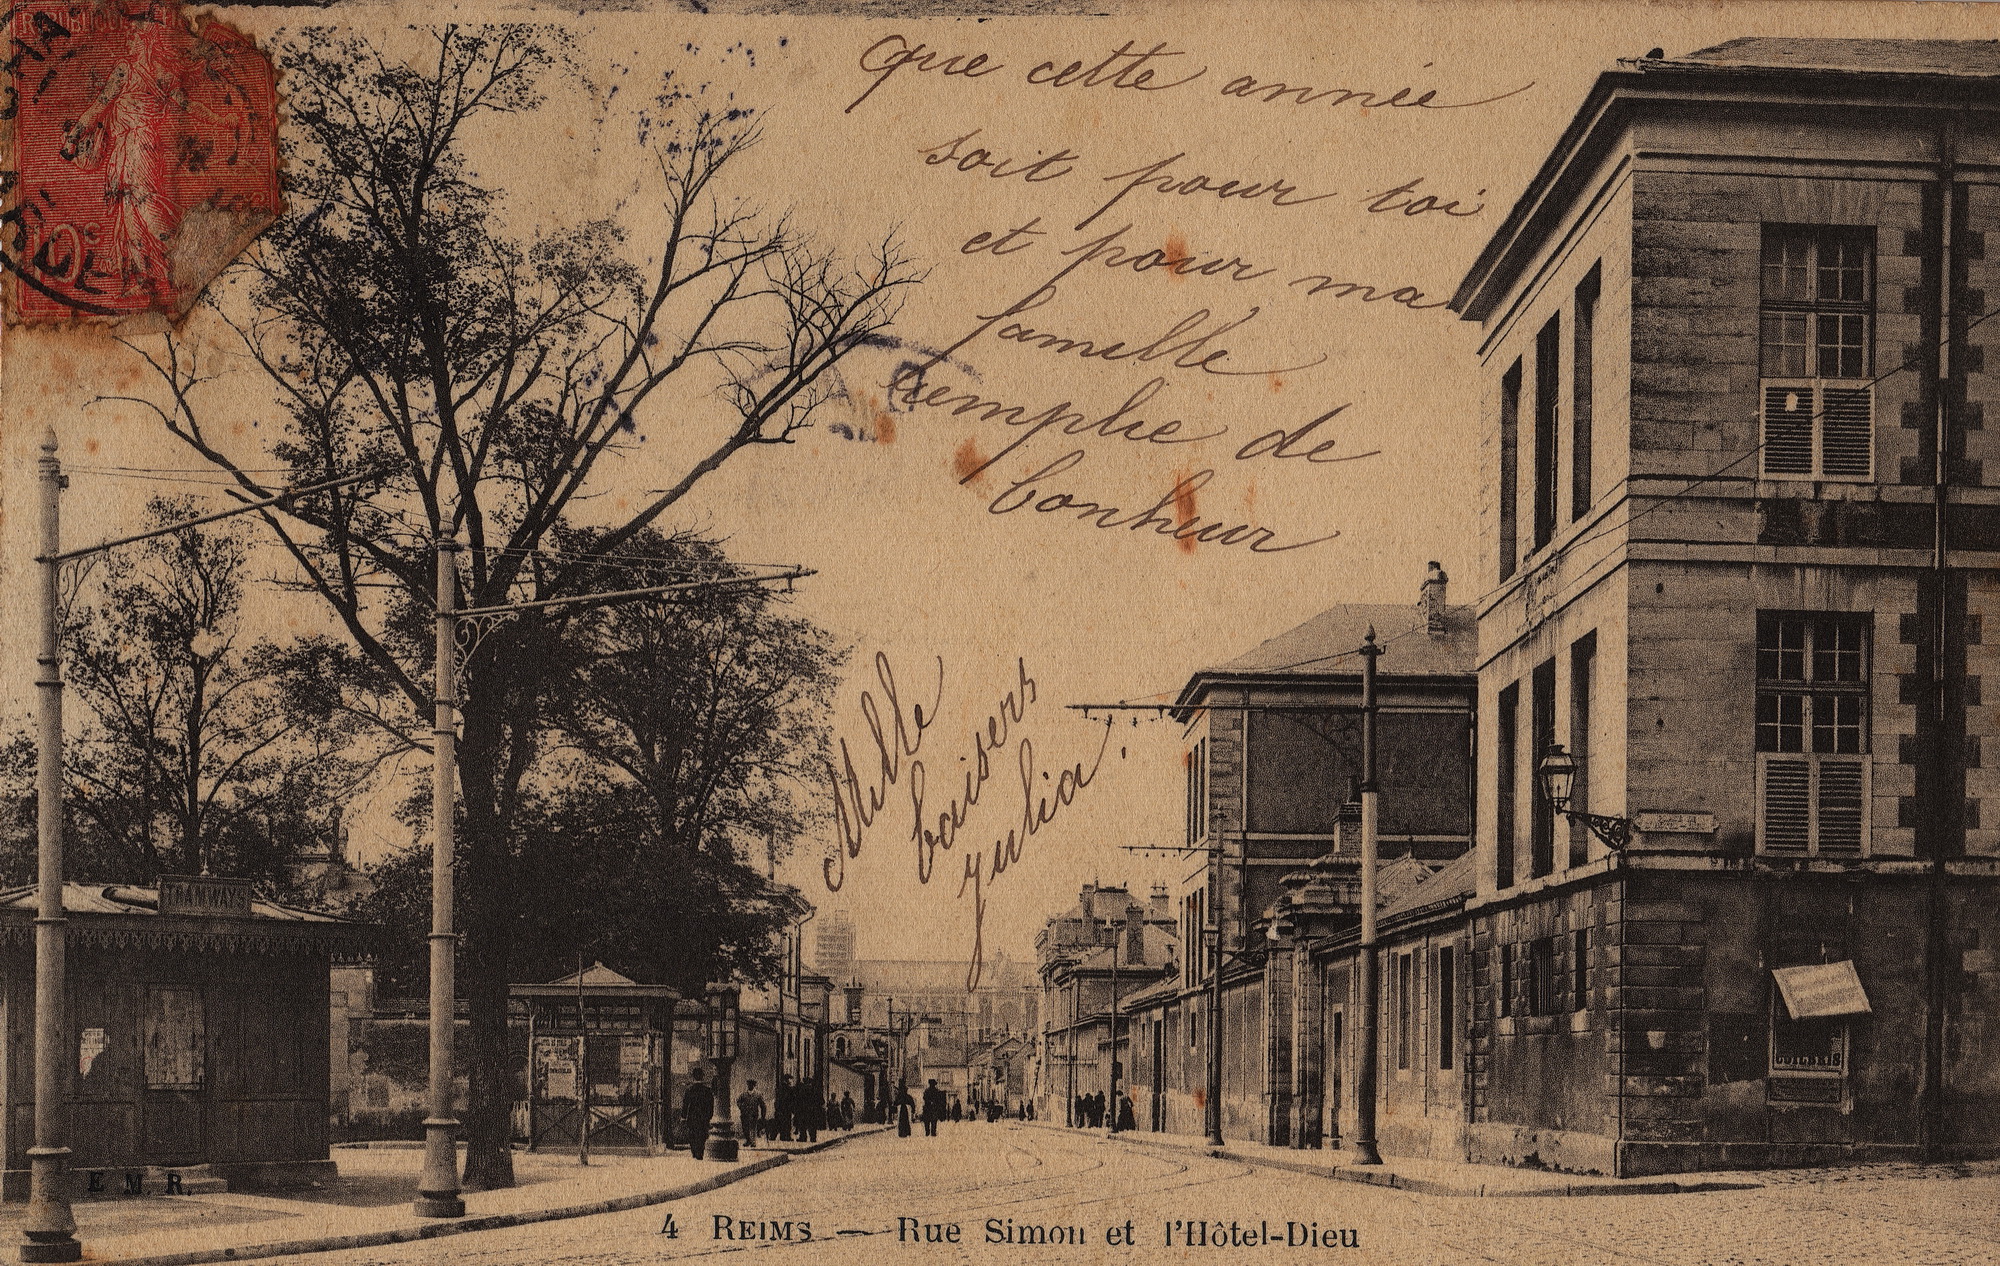 REPUBLIQUE
10c
que cette année
soit pour toi
et pour ma
famille
remplie de
bonheur
Mille
baisers
yulia
TRAMWAYS
E. M. R.
4 REIMS — Rue Simon et l'Hôtel-Dieu